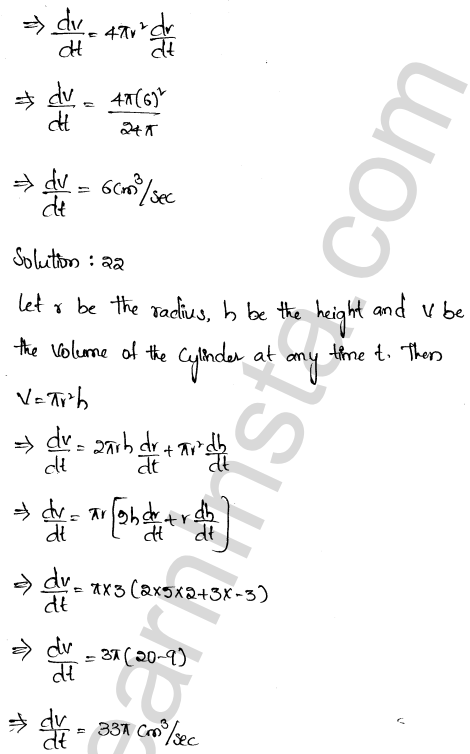 ⇒ dv/dt = 4πr² dr/dt
⇒ dv/dt = 4π(6)²/24π
⇒ dv/dt = 6cm³/sec
Solution : 22
Let r be the radius, h be the height and V be
the volume of the cylinder at any time t. Then
V = πr²h
⇒ dv/dt = 2πrh dr/dt + πr² dh/dt
⇒ dv/dt = πr[2h dr/dt + r dh/dt]
⇒ dv/dt = π×3(2×5×2+3×-3)
⇒ dv/dt = 3π(20-9)
⇒ dv/dt = 33π cm³/sec
LearnInsta.com